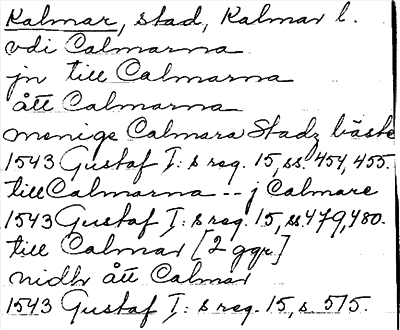 Kalmar, stad, Kalmar l.
vdi Calmarna
jn till Calmarna
ått Calmarna
menige Calmara Stadz bäste
1543 Gustaf I: s reg. 15, ss. 454, 455.
till Calmarna -- j Calmare
1543 Gustaf I: s reg. 15, ss 479, 480.
till Calmar [2 ggr]
nidhr ått Calmar
1543 Gustaf I: s reg. 15, s 515.